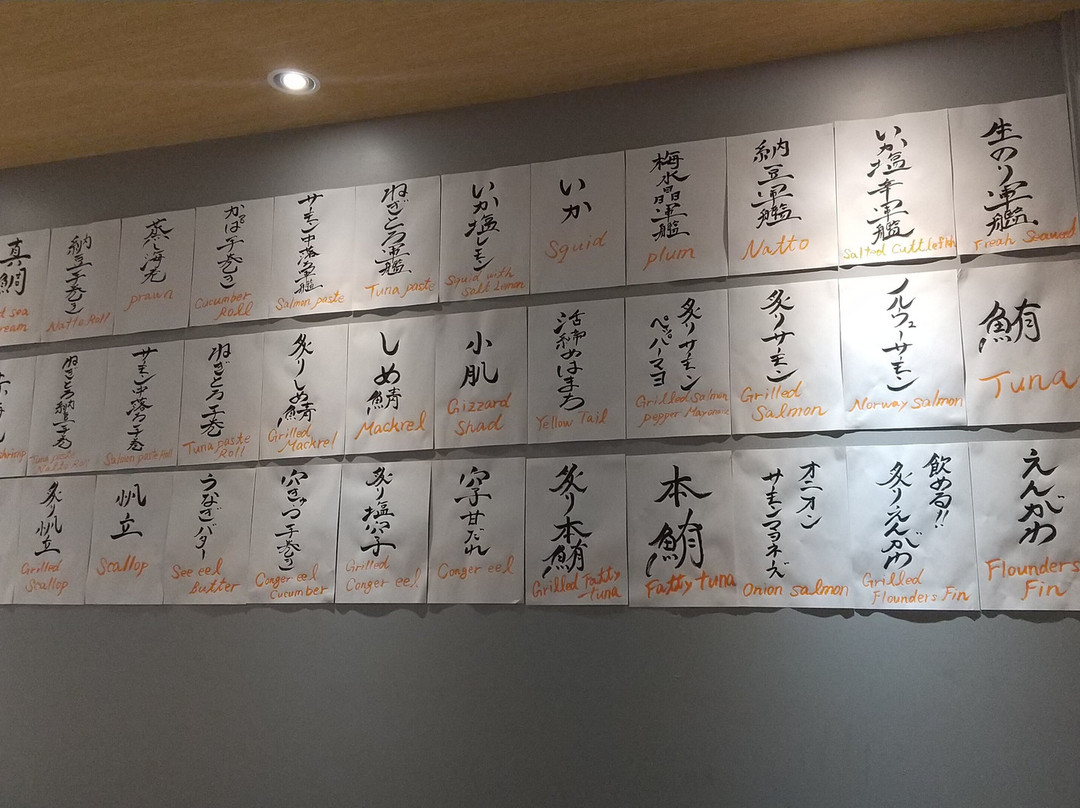 生のり軍艦
Fresh Seaweed
いか塩辛軍艦
Salted Cuttlefish
納豆軍艦
Natto
梅水晶軍艦
plum
いか
Squid
いか塩レモン
Squid with
Salt Lemon
ねぎとろ軍艦
Tuna paste
サーモン中落ち軍艦
Salmon paste
かっぱ手巻き
Cucumber
Roll
蒸し海老
prawn
納豆手巻き
Natto Roll
真鯛
sea
鮪
Tuna
ノルウェーサーモン
Norway Salmon
炙りサーモン
Grilled
Salmon
炙りサーモン
ペッパーマヨ
Grilled Salmon
pepper Mayonnaise
活〆めはまち
Yellow Tail
小肌
Gizzard
Shad
しめ鯖
Mackrel
炙りしめ鯖
Grilled
Mackrel
ねぎとろ手巻
Tuna paste
Roll
サーモン中落ち手巻
Salmon paste Roll
ねぎとろ納豆手巻
えんがわ
Flounders
Fin
飲める!!
炙りえんがわ
Grilled
Flounders Fin
オニオン
サーモンマヨネーズ
Onion salmon
本鮪
Fatty tuna
炙り本鮪
Grilled Fatty
tuna
穴子甘だれ
Conger eel
炙り塩穴子
Grilled
Conger eel
穴きゅう手巻き
Conger eel
Cucumber
うなぎバター
See eel
Butter
帆立
Scallop
炙り帆立
Grilled
Scallop